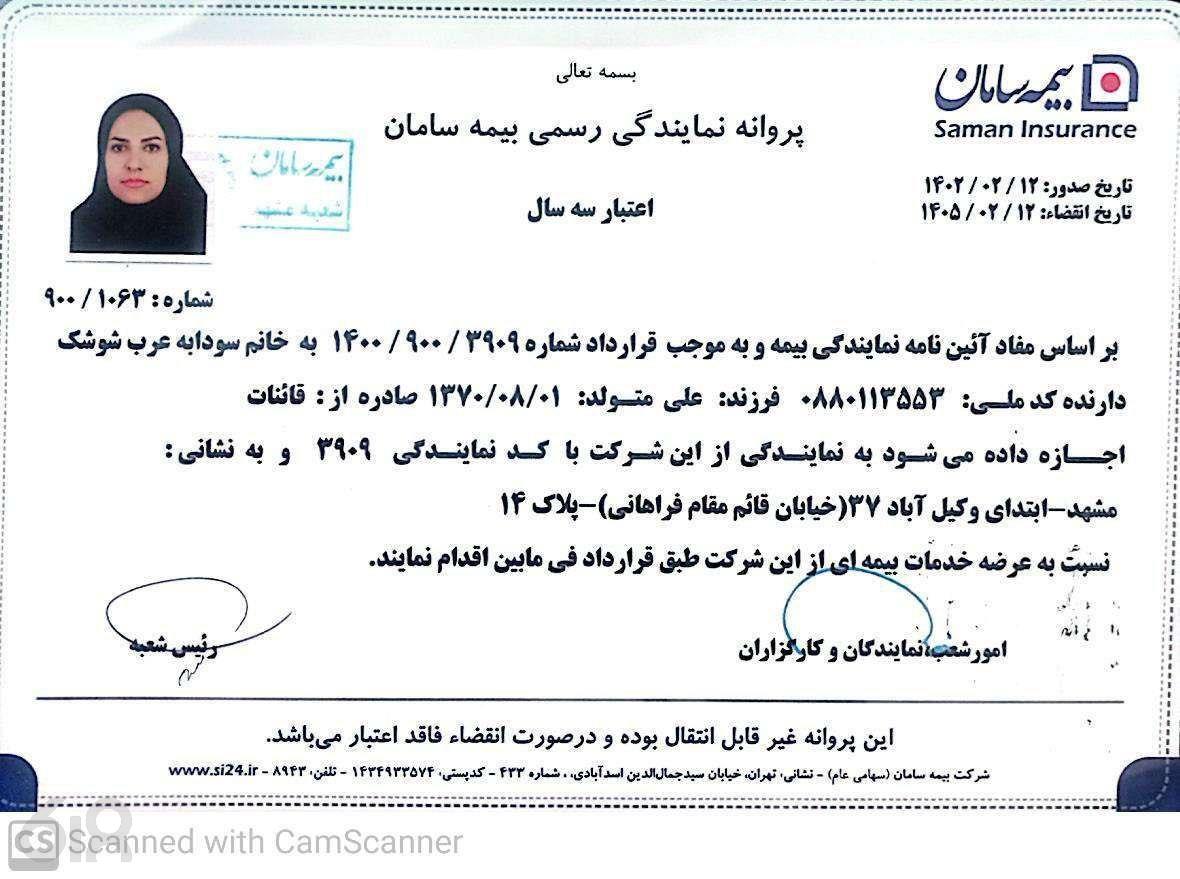 بسمه تعالی
بیمه سامان
Saman Insurance
پروانه نمایندگی رسمی بیمه سامان
بیمه سامان
شعبه مشهد
تاریخ صدور: ۱۴۰۲/۰۲/۱۲
اعتبار سه سال
تاریخ انقضاء: ۱۴۰۵/۰۲/۱۲
شماره: ۹۰۰/۱۰۶۳
بر اساس مفاد آئین نامه نمایندگی بیمه و به موجب قرارداد شماره ۱۴۰۰/۹۰۰/۳۹۰۹ به خانم سودابه عرب شوشک
دارنده کد ملـی: ۰۸۸۰۱۱۳۵۵۳ فرزند: علی متـولد: ۱۳۷۰/۰۸/۰۱ صادره از: قائنات
اجـــازه داده می شـود به نمایندگی از این شـرکت با کـد نماینـدگی ۳۹۰۹ و به نشانی:
مشهد-ابتدای وکیل آباد ۳۷(خیابان قائم مقام فراهانی)-پلاک ۱۴
نسبت به عرضه خدمات بیمه ای از این شرکت طبق قرارداد فی مابین اقدام نمایند.
امورشعب،نمایندگان و کارگزاران
رئیس شعبه
این پروانه غیر قابل انتقال بوده و درصورت انقضاء فاقد اعتبار می‌باشد.
شرکت بیمه سامان (سهامی عام) - نشانی: تهران، خیابان سیدجمال‌الدین اسدآبادی، ، شماره ۴۳۳ - کدپستی: ۱۴۳۴۹۳۳۵۷۴ - تلفن: ۸۹۴۳ - www.si24.ir
CS Scanned with CamScanner